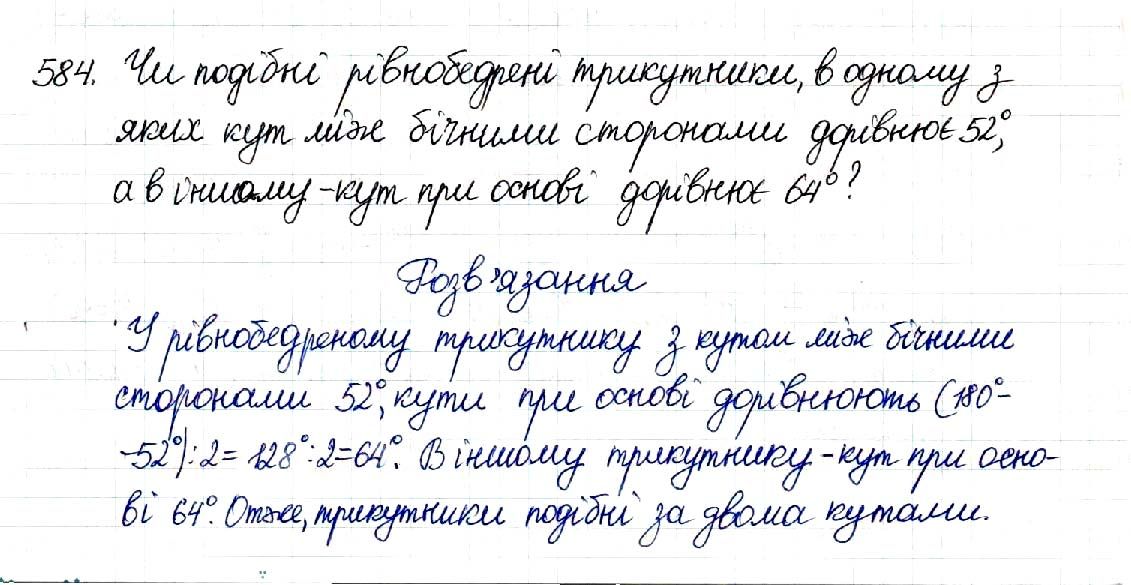 584. Чи подібні рівнобедрені трикутники, в одному з
яких кут між бічними сторонами дорівнює 52°,
а в іншому - кут при основі дорівнює 64°?
Розв'язання
У рівнобедреному трикутнику з кутом між бічними
сторонами 52°, кути при основі дорівнюють (180°-
-52°):2=128°:2=64°. В іншому трикутнику - кут при осно-
ві 64°. Отже, трикутники подібні за двома кутами.